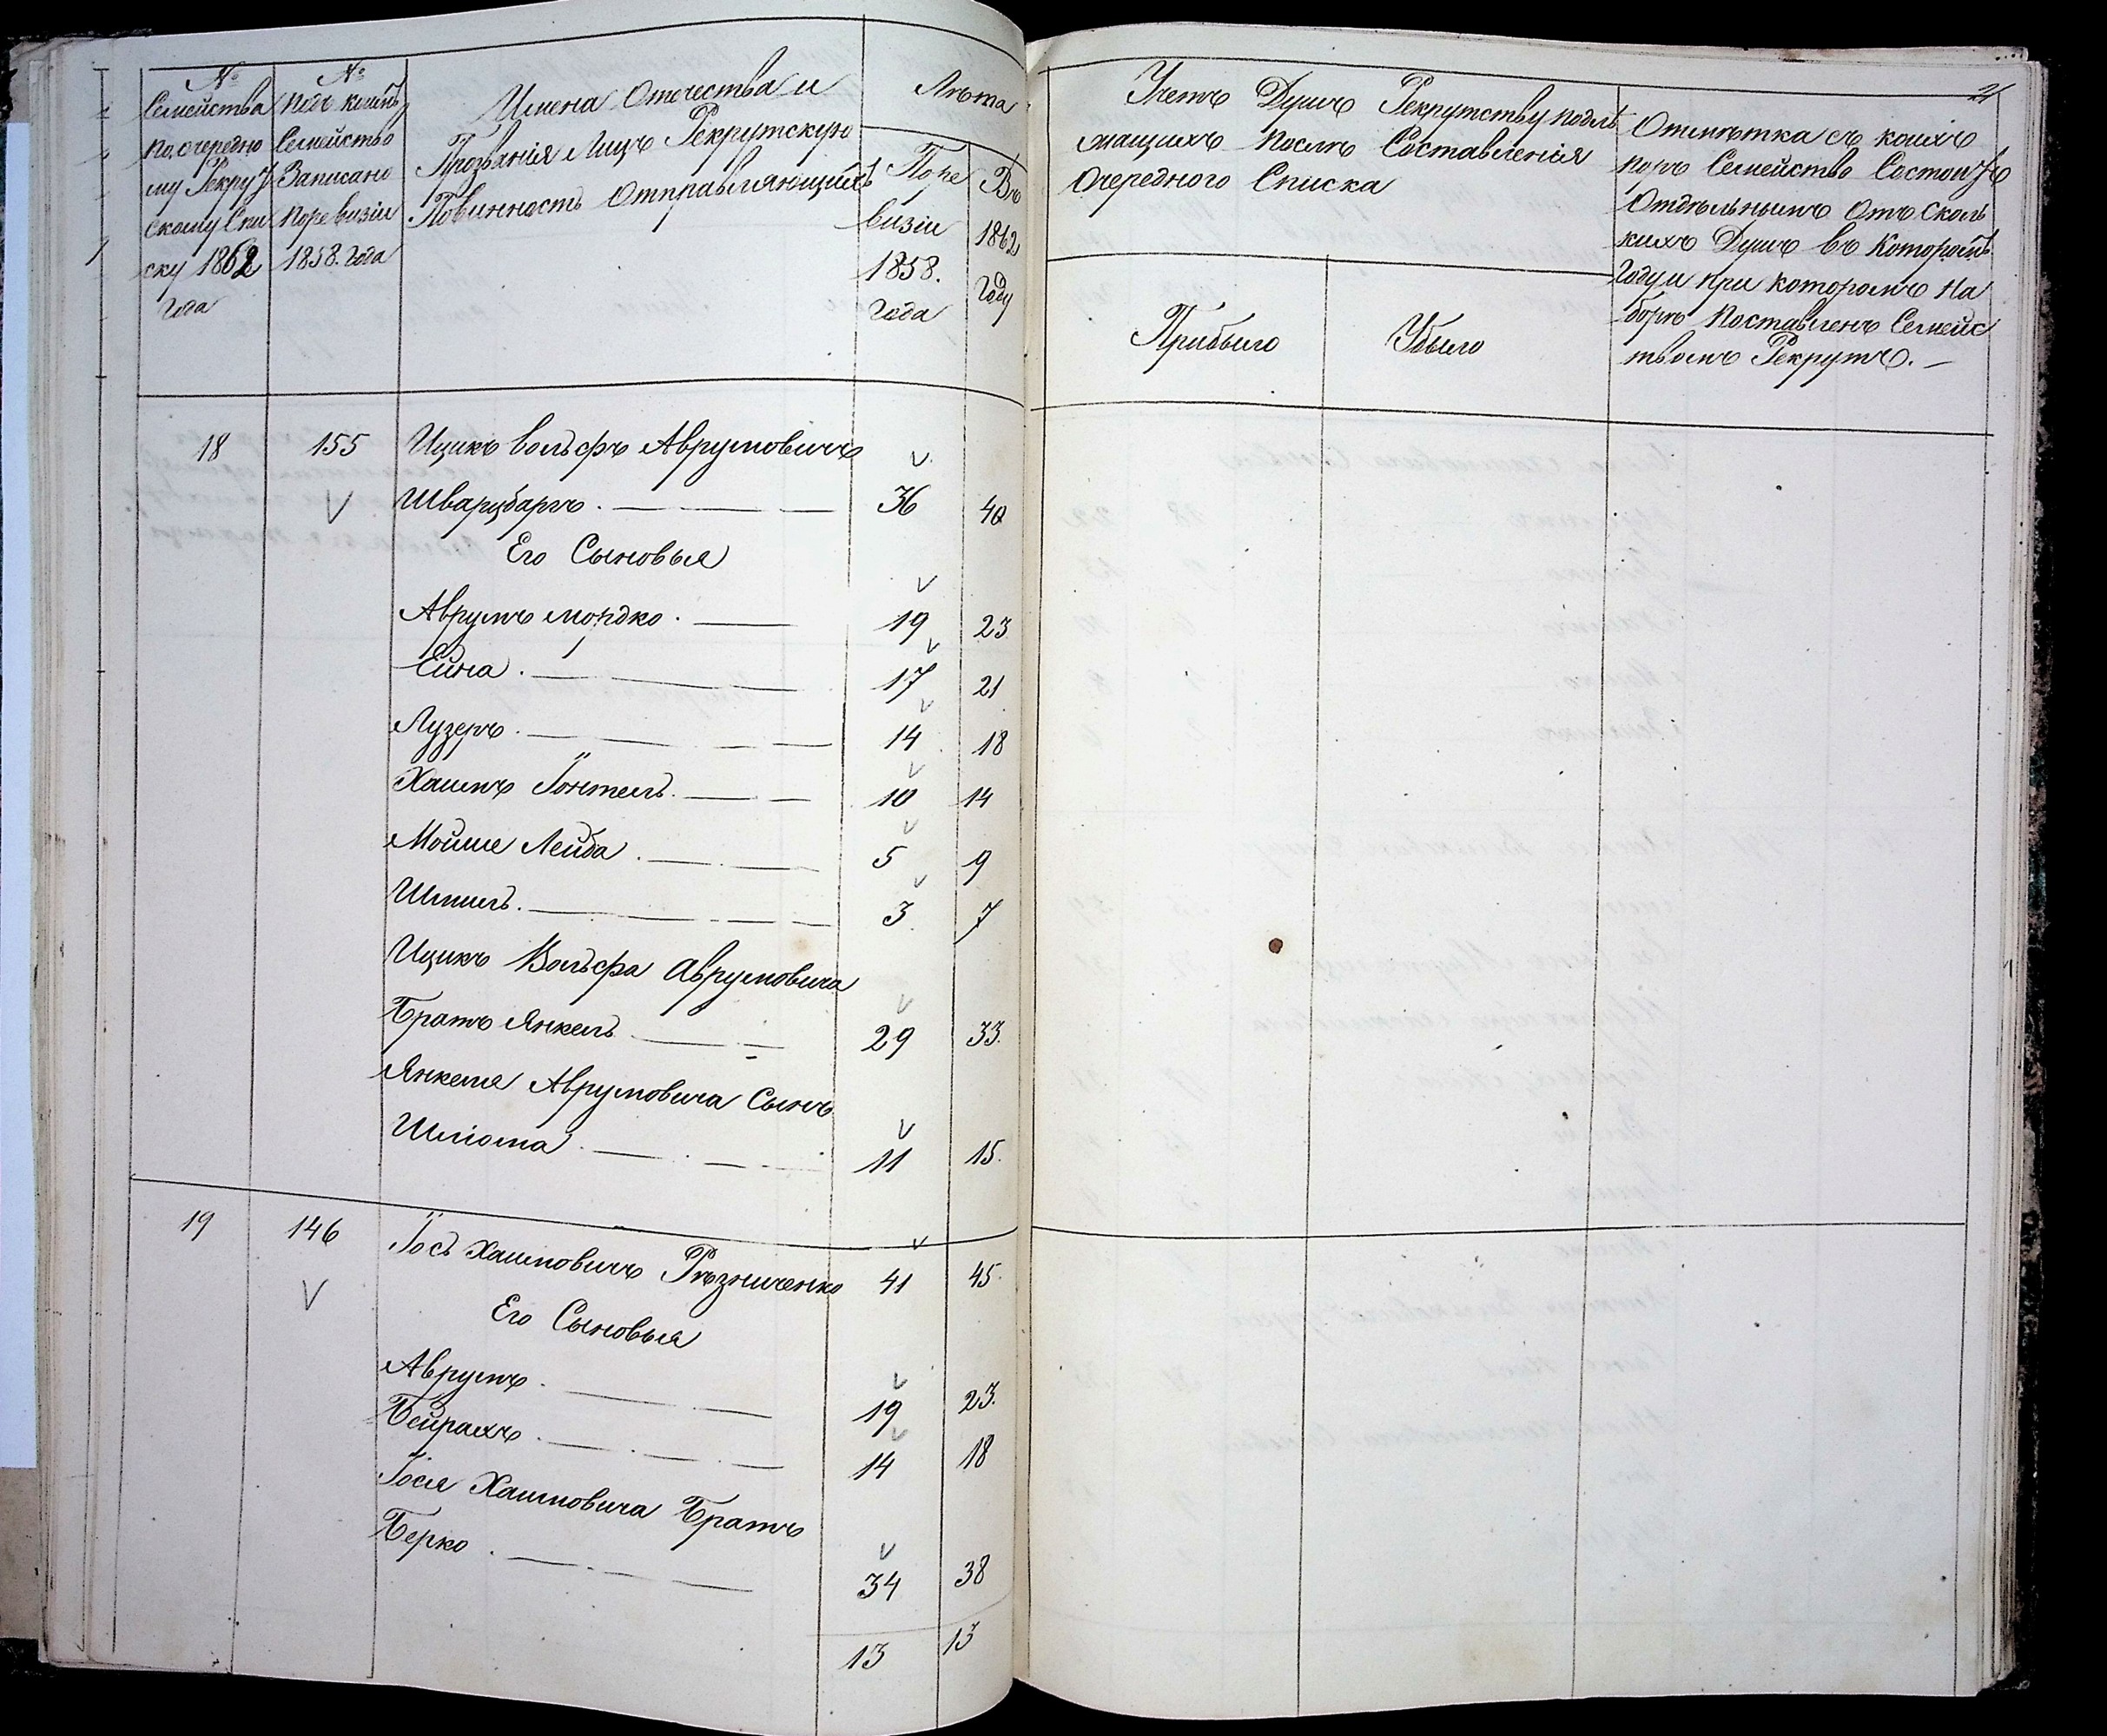 №
Семейства
по очередно
му Рекрут
скому Спи
ску 1862
года
№
подъ коимъ
Семейство
Записано
по ревизіи
1858. года
Имена Отечества и
Прозванія Лицъ Рекрутскую
Повинность Отправляющихъ
Лѣта
По ре
визіи
1858.
года
Въ
1862
году
Учетъ Душъ Рекрутству подлѣ
жащихъ послѣ Составленія
Очереднаго Списка
Прибыло
Убыло
21
Отмѣтка съ коихъ
поръ Семейство Состоитъ
Отдѣльнымъ Отъ Сколь
кихъ Душъ въ Которомъ
году и при которомъ На
борѣ поставленъ Семейс
твомъ Рекрутъ. —
18 155 Ицикъ Вольфъ Аврумовичъ
Шварцбаргъ. 36 40
Его Сыновья
Аврумъ Мордко. 19 23.
Ейна. 17 21
Лузеръ. 14 18
Хаимъ Іонтель. 10 14
Мойше Лейба. 5 9
Шмиль. 3. 7
Ицикъ Вольфа Аврумовича
Братъ Янкель 29 33.
Янкеля Аврумовича Сынъ
Шліома. 11 15.
19 146 Іось Хаимовичъ Рѣзниченко 41 45.
Его Сыновья
Аврумъ. 19 23.
Бейрахъ. 14 18
Іося Хаимовича Братъ
Берко. 34 38
13 13